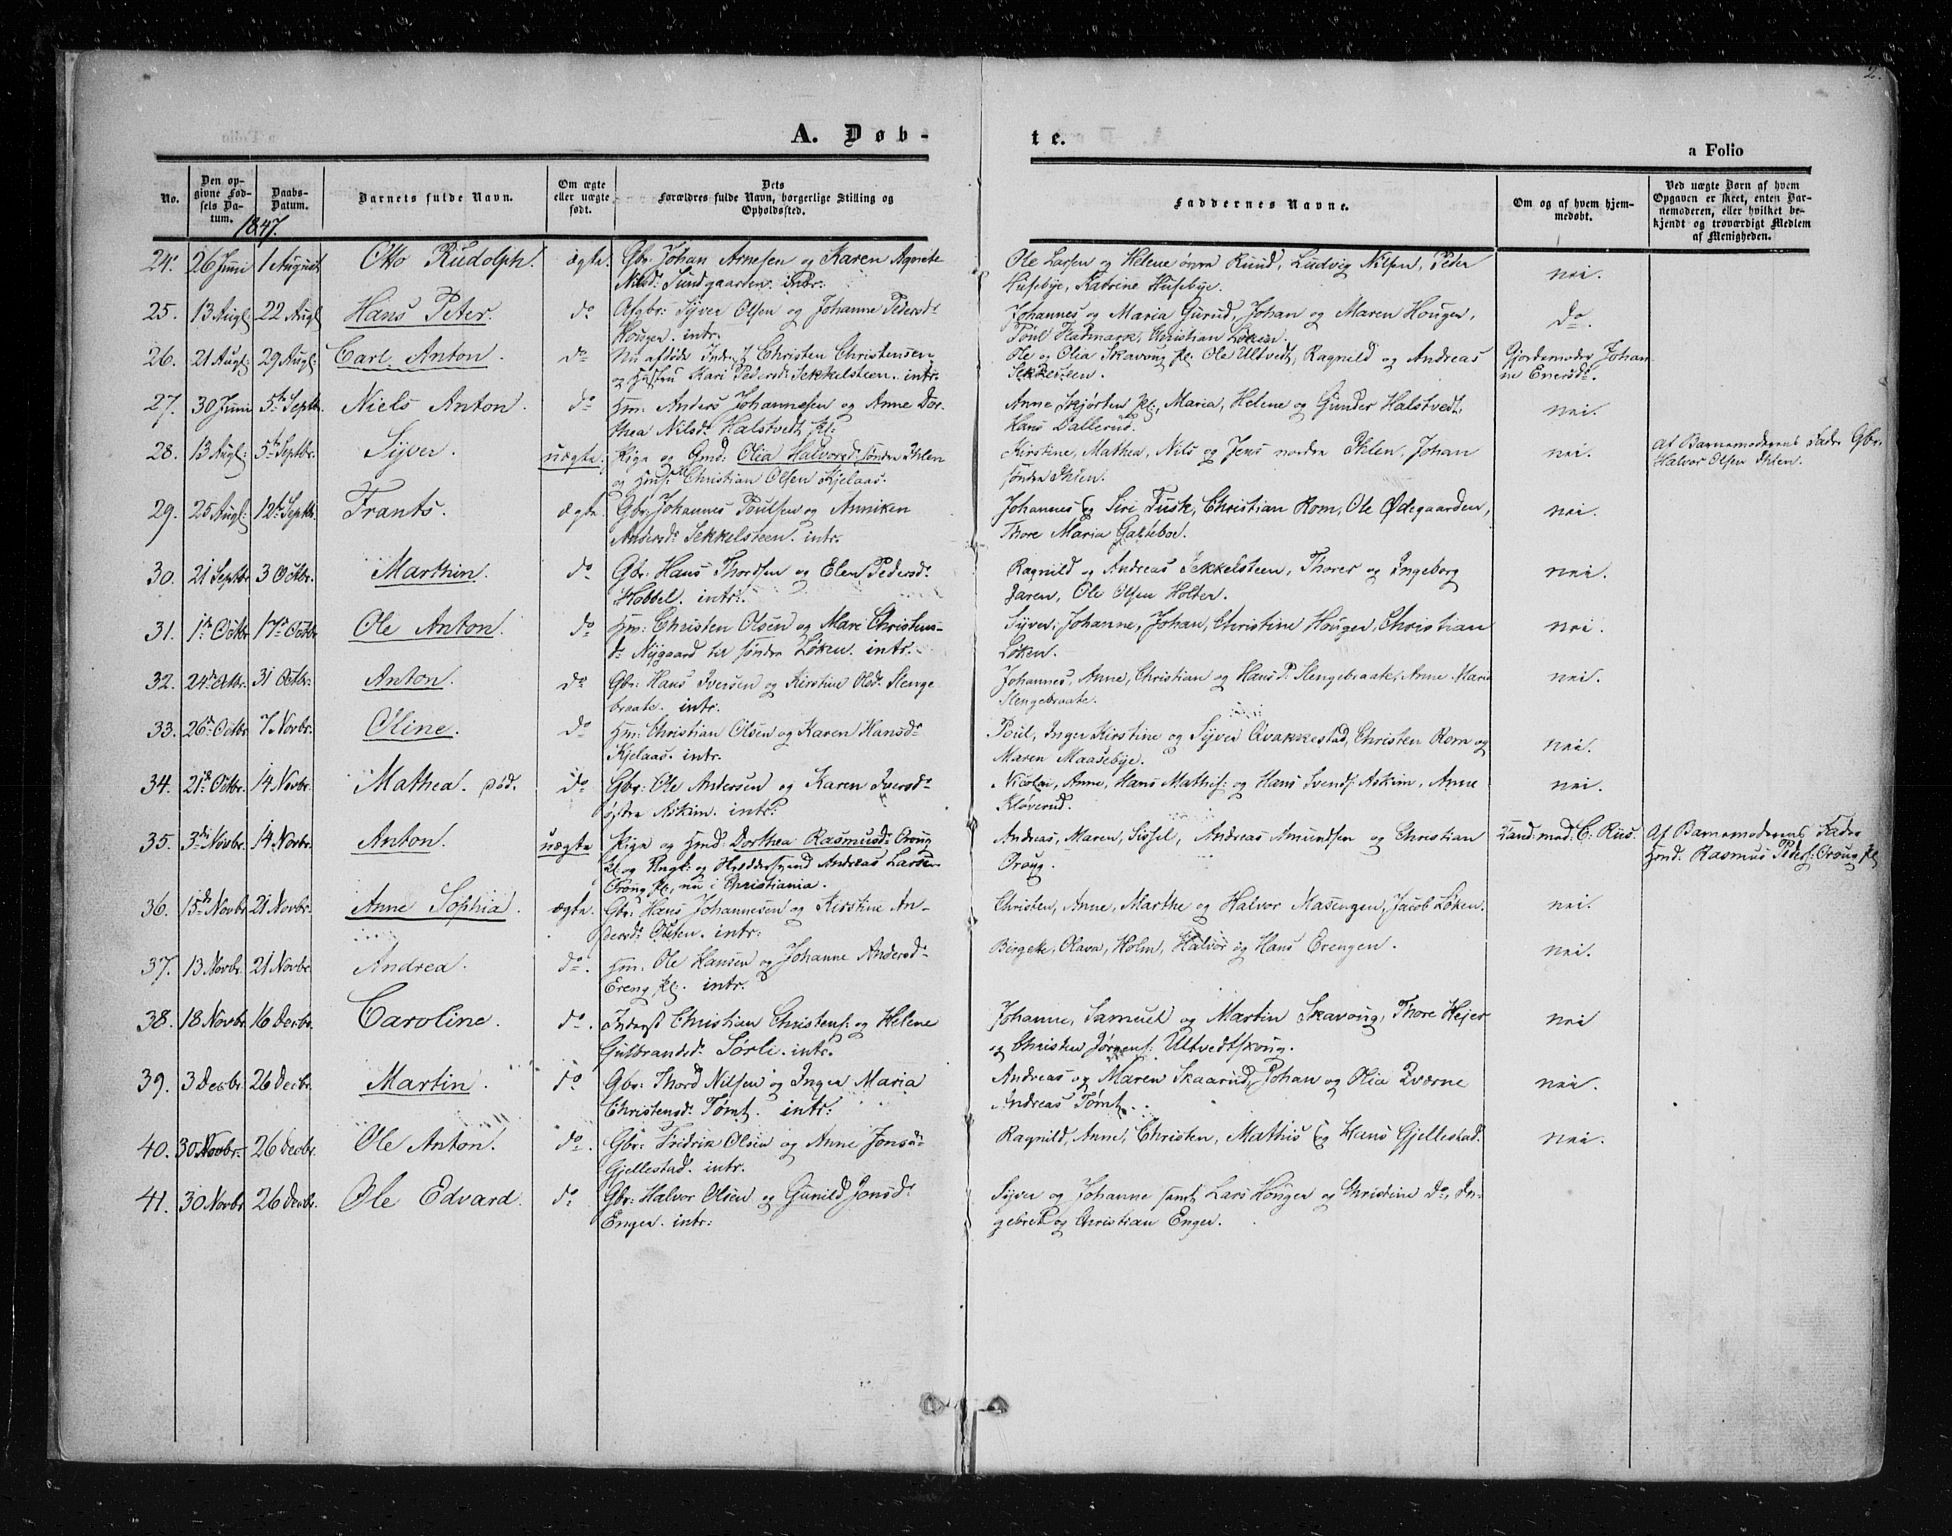 2.
A. Døb-
te.
a Folio
No.
Den op-
givne Fød-
sels Da-
tum.
Daabs-
Datum.
Barnets fulde Navn.
Om ægte
eller uægte
født.
Dets
Forældres fulde Navn, borgerlige Stilling og
Opholdssted.
Faddernes Navne.
Om og af hvem hjem-
medøbt.
Ved uægte Børn af hvem
Opgaven er skeet, enten Bar-
nemoderen, eller hvilket be-
kjendt og troværdigt Medlem
af Menigheden.
1847.
24. 26 Juni 1 August Otto Rudolph. ægte. Gbr: Johan Arnesen og Karen Agnete
Nilsd: Sundgaarden. intr:
Ole Larsen og Helene øvre Rund, Ludvig Nilsen, Peder
Husebye, Katrine Husebye.
nei.
25. 13 Augl 22 Augl Hans Peter. do Afgbr: Syver Olsen og Johanne Pedersd:
Houger. intr:
Johannes og Maria Gurud, Johan og Maren Hougen,
Poul Hadmark, Christian Løken.
do.
26. 21 Augl: 29 Augl: Carl Anton. do Nu afdøde Inderst Christen Christensen
og Hustru Kari Pedersd: Sekkelsteen. intr:
Ole og Olia Skavoug pl. Ole Ultvedt, Ragnild og Andreas
Sekkelsteen.
Gjordemoder Johan-
ne Enersd:
27. 30 Juni 5te Septb. Niels Anton. do Hm: Anders Johannesen og Anne Dor-
thea Nilsd: Halstvedt pl:
Anne Skjørten pl:, Maria, Helene og Gunder Halstvedt,
Hans Dallerud.
nei.
28. 13 Augl: 5te Septbr. Syver. uægte: Piga og Gmd: Olia Halvorsd: søndre Ihlen
og Hmd: Christian Olsen Kjelaas.
Kirstine, Mathea, Nils og Jens nordre Ihlen, Johan
søndre Ihlen.
nei.
af Barnemoderens Fader Gbr:
Halvor Olsen Ihlen.
29. 25 Augl: 12te Septbr. Frants. ægte. Gbr: Johannes Poulsen og Anniken
Andersd: Sekkelsteen. intr:
Johannes og Siri Tusk, Christian Rom, Ole Ødegaarden,
Thore Maria Galteboe.
nei.
30. 21 Septbr 3 Octbr. Marthin. do Gbr: Hans Thordsen og Elen Pedersd:
Hobbel. intr:
Ragnild og Andreas Sekkelsteen, Thorer og Ingeborg
Jaren, Ole Olsen Holter.
nei.
31. 1te Octbr 17de Octbr Ole Anton. do Hm: Christen Olsen og Mari Christens-
d: Nygaard til søndre Løken. intr:
Syver, Johanne, Johan, Christine Houger, Christian
Løken.
nei.
32. 24de Octbr. 31 Octbr. Anton. do Gbr: Hans Iversen og Kirstine Olsd: Slenge-
braate. intr:
Johannes, Anne, Christian og Hans P. Slengebraate, Anne Marie
Slengebraate.
nei.
33. 26de Octbr 7 Novbr. Oline. do Hm: Christian Olsen og Karen Hansd:
Kjelaas. intr:
Poul, Inger Kirstine og Syver Qvakkestad, Christen Rom og
Maren Maasebye.
nei.
34. 21de Octbr. 14 Novbr. Mathea. død. do Gbr: Ole Andersen og Karen Iversd:
østre Askim. intr:
Nicolai, Anne, Hans Mathis: og Hans Svends: Askim, Anne
Kløverud.
nei.
35. 3die Novbr. 14 Novbr. Anton. uægte Piga og Hmd: Dorthea Rasmusd: Oroug
pl og Ungk: og Andreas Larsen
Oroug pl., nu i Christiania.
Andreas, Maren, Sissel, Andreas Amundsen og Christian
Oroug.
Cand: med: C: Riis.
Af Barnemoderens Fader
Hmd: Rasmus Peders: Oroug pl
36. 15de Novbr 21 Novbr. Anne Sophia. ægte. Gbr: Hans Johannesen og Kirstine An-
dersd: Obsten. intr:
Christen, Anne, Marthe og Halvor Masengen, Jacob Løken.
nei.
37. 13 Novbr. 21 Novbr. Andrea. do. Hm: Ole Hansen og Johanne Andersd:
Ereng pl. intr.
Birgette, Olava, Holm, Halvor og Hans Erengen.
nei.
38. 18 Novbr 16 Decbr. Caroline. do. Inderst Christian Christens: og Helene
Gulbrandsd: Sørli. intr:
Johanne, Samuel og Martin Skavoug, Thore Hejer
og Christen Jørgens: Ultvedtskoug.
nei
39. 3 Decbr. 26 Decbr. Martin. do Gbr: Thord Nilsen og Inger Maria
Christensd: Tømt. intr:
Andreas og Maren Skaarud, Johan og Olia Qværne
Andreas Tømt.
nei.
40. 30 Novbr. 26 Decbr. Ole Anton. do. Gbr: Fridrik Olsen og Anne Jonsd:
Gjellestad. intr:
Ragnild, Anne, Christen, Mathis og Hans Gjellestad.
nei.
41. 30 Novbr 26 Decbr. Ole Edvard. do. Gbr: Halvor Olsen og Gunild Jonsd:
Enger. intr:
Syver og Johanne samt Lars Houger og Christine do, In-
gebret og Christian Enger.